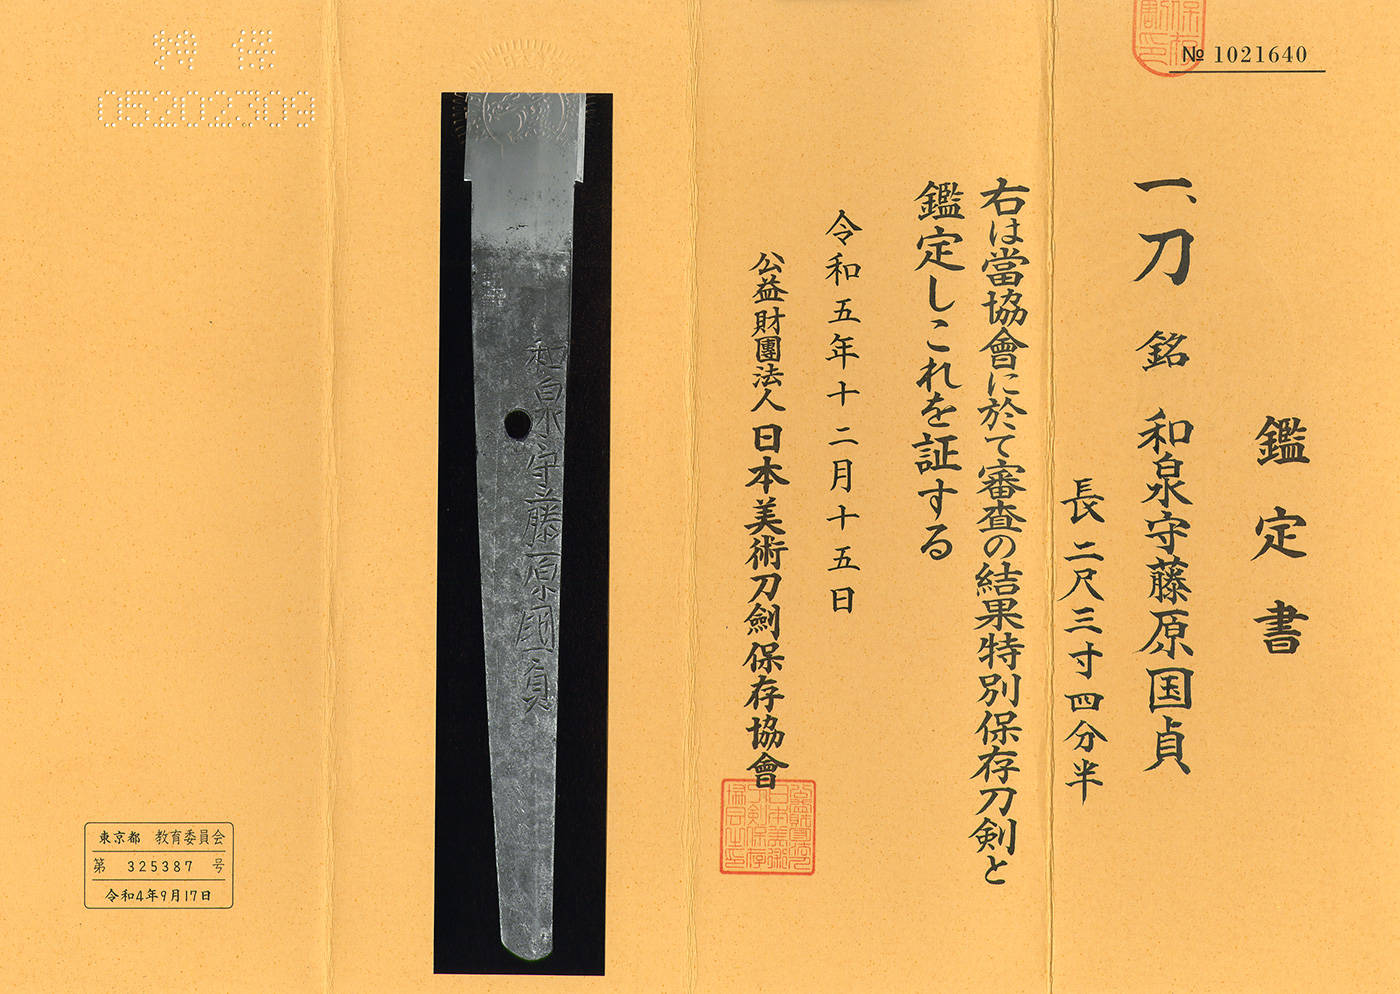 № 1021640
鑑定書
一、刀 銘 和泉守藤原国貞
長 二尺三寸四分半
右は當協會に於て審査の結果特別保存刀剣と
鑑定しこれを証する
令和五年十二月十五日
公益財團法人 日本美術刀劍保存協會
和泉守藤原國貞
05202309
東京都 教育委員会
第 325387 号
令和4年9月17日